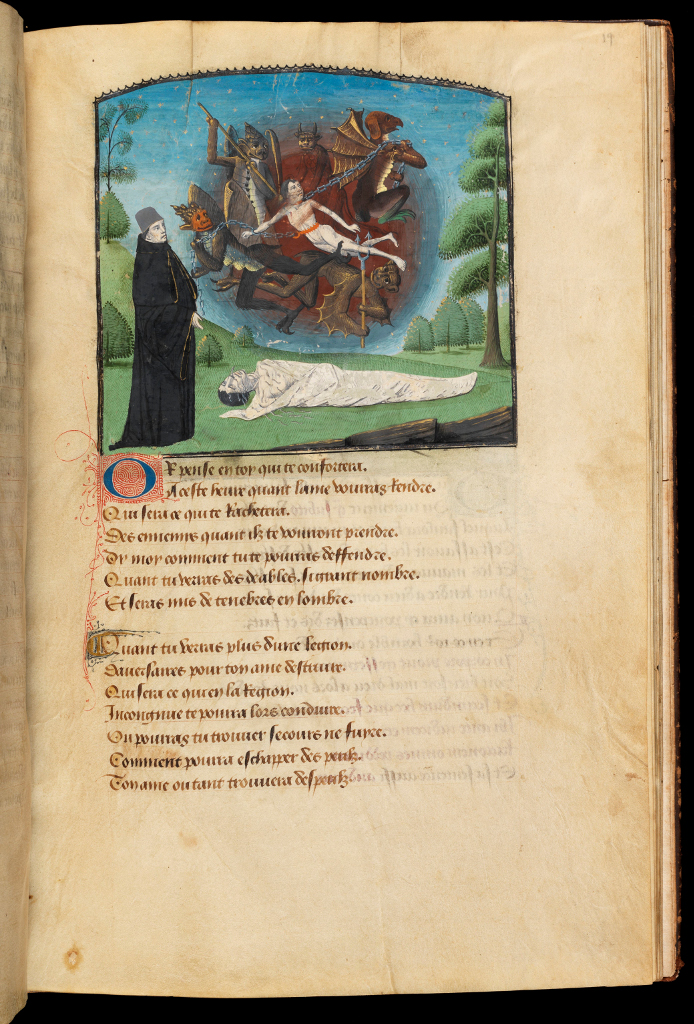 19
OR pense en toy qui te confortera.
A ceste heure quant lame vourras Rendre.
Qui sera ce qui te Rachetera.
Des ennemis quant ilz te vouront prendre.
Dy moy comment tu te pouras deffendre.
Quant tu verras des deables. si grant nombre.
Et seras mis de tenebres en lombre.
Quant tu verras plus dune legion.
Daversaires pour ton ame destruire.
Qui sera ce qui en la Region.
Incongnue te poura lors conduire.
Ou pourras tu trouver secours ne fuyre.
Comment poura eschapper des perilz.
Ton ame ou tant trouvera desperilz.